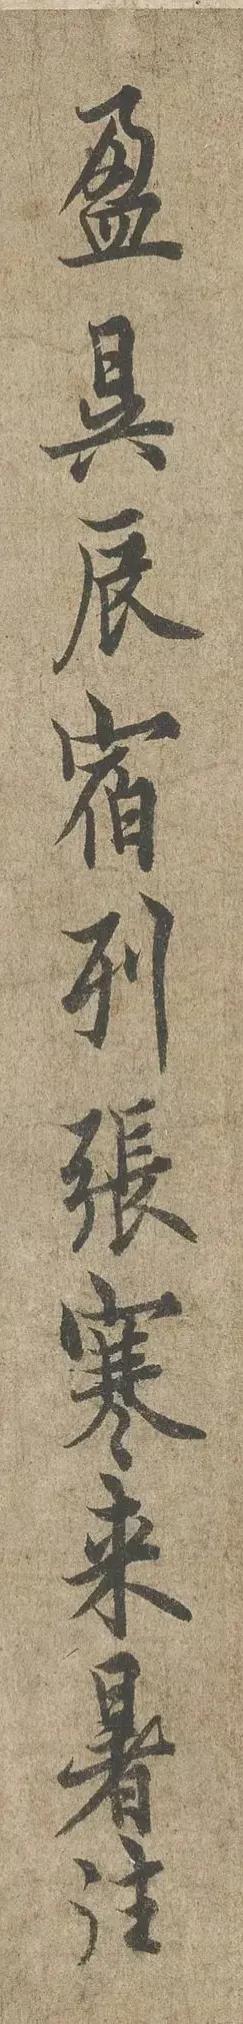 盈昃辰宿列張寒来暑往